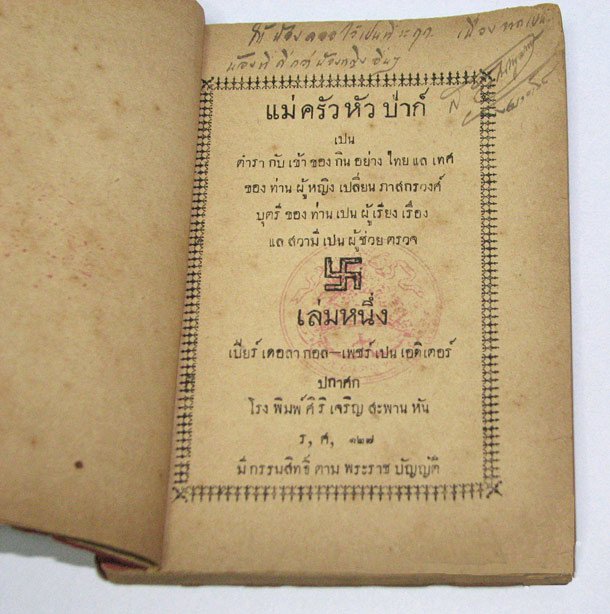 ให้ น้อง ไว้เป็นที่ระฦก เนื่องจากเป็น
น้องที่ดีกว่าน้องหญิงอื่นๆ
แม่ครัวหัวป่าก์
เปน
ตำรา กับ เข้า ของ กิน อย่าง ไทย แล เทศ
ของ ท่าน ผู้ หญิง เปลี่ยน ภาสกรวงศ์
บุตรี ของ ท่าน เปน ผู้ เรียง เรื่อง
แล สวามี เปน ผู้ ช่วย ตรวจ
เล่มหนึ่ง
เบียร์ เดอลา กอล—เพชร์ เปน เอดิเตอร์
ปกาศก
โรง พิมพ์ ศิริ เจริญ สะพาน หัน
ร, ศ, ๑๒๗
มี กรรมสิทธิ์ ตาม พระราช บัญญัติ